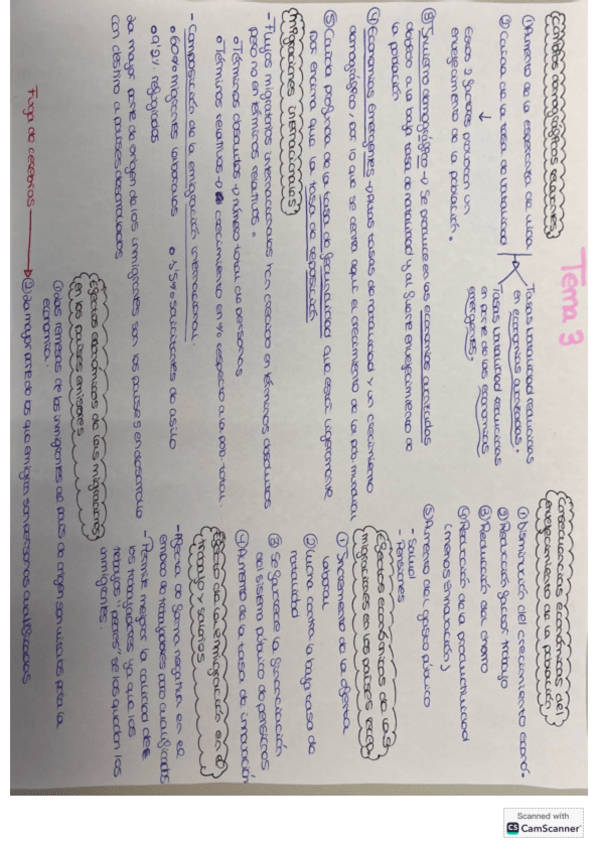 Tema 3
Cambios demográficos recientes
① Aumento de la esperanza de vida.
② Caída de la tasa de natalidad
Tasas natalidad reducidas
en economías avanzadas.
Tasas natalidad reducidas
en parte de las economías
emergentes.
Estos 2 factores provocan un
envejecimiento de la población.
③ Invierno demográfico → Se produce en las economías avanzadas
debido a la baja tasa de natalidad y al fuerte envejecimiento de
la población
④ Economías Emergentes → Altas tasas de natalidad y un crecimiento
demográfico, por lo que se centa aquí el crecimiento de la pob mundial
⑤ Caída profunda de la tasa de fecundidad que está ligeramente
por encima que la tasa de reposición
Migraciones internacionales
- Flujos migratorios internacionales han crecido en términos absolutos
pero no en términos relativos.
Términos absolutos → número total de personas
Términos relativos → crecimiento en % respecto a la pob. total.
- Composición de la emigración internacional.
60% migrantes laborales
5'5% solicitantes de asilo
9'2% refugiados
La mayor parte de origen de los inmigrantes son los países en desarrollo
con destino a países desarrollados
Efectos económicos de las migraciones
en los países emisores
① Las remesas de los inmigrantes de país de origen son vitales para la
economía.
Fuga de cerebros → ② La mayor parte de los que emigran son personas cualificadas
Consecuencias económicas del
envejecimiento de la población
① Disminución del crecimiento econó.
② Reducción factor trabajo
③ Reducción del ahorro
④ Reducción de la productividad
(menos innovación)
⑤ Aumento del gasto público
- Salud
- Pensiones
Efectos económicos de las
migraciones en los países recep.
① Incremento de la oferta
laboral
② Lucha contra la baja tasa de
natalidad
③ Se favorece la financiación
del sistema público de pensiones
④ Aumento de la tasa de innovación
Efecto de la emigración en el
trabajo y salarios
- Afecta de forma negativa en el
empleo de trabajadores poco cualificados
- Permite mejorar la calidad de
los trabajadores ya que los
trabajos "peores" se los quedan los
inmigrantes.
Scanned with
CS CamScanner